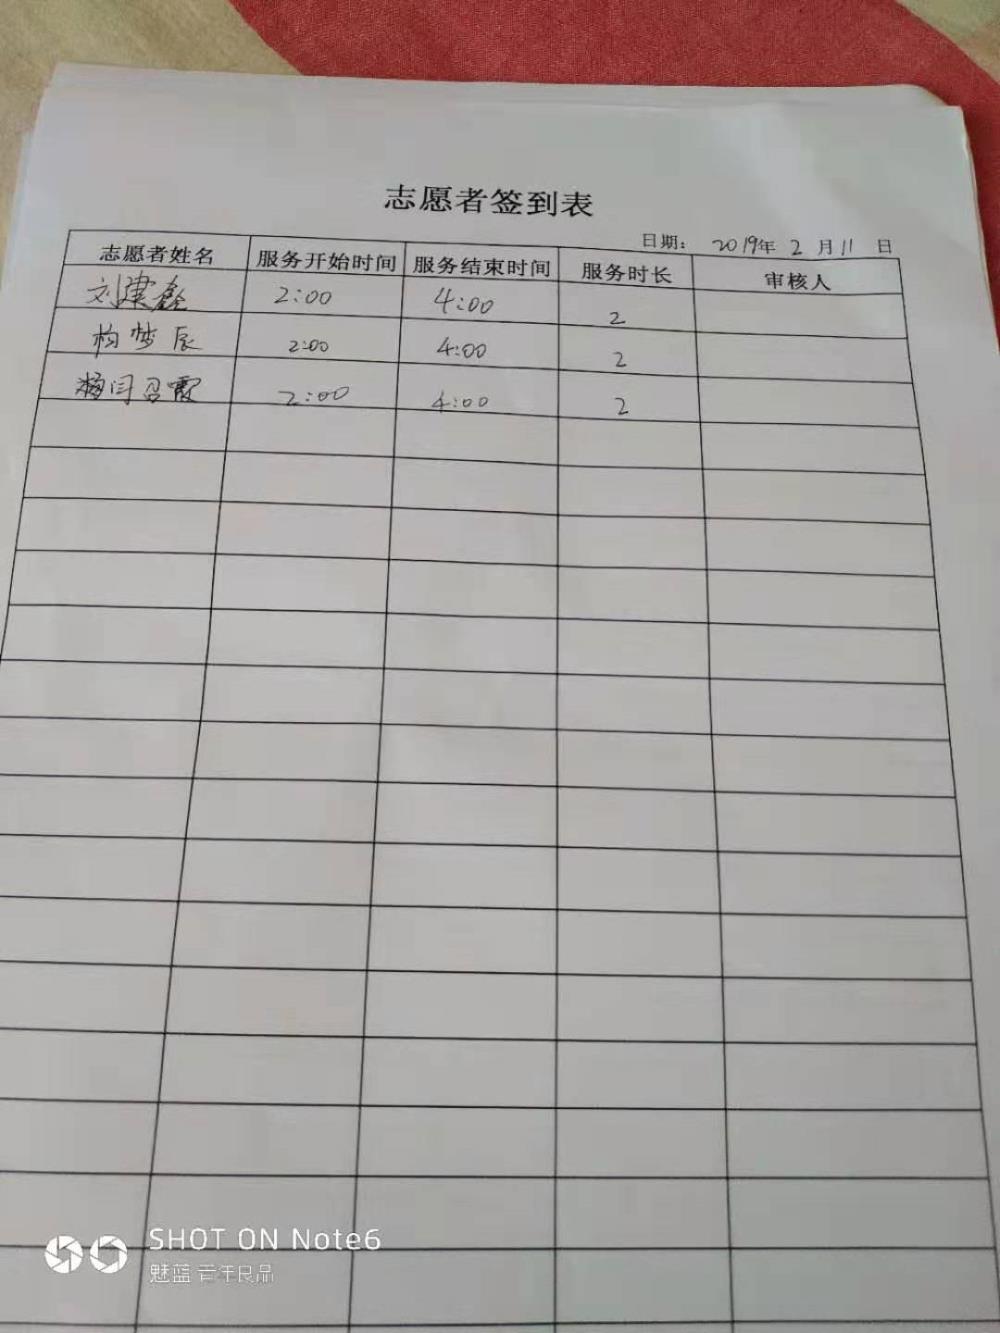 志愿者签到表
日期： 2019年 2 月 11 日
志愿者姓名 服务开始时间 服务结束时间 服务时长 审核人
刘建鑫 2:00 4:00 2
构梦辰 2:00 4:00 2
闫召霞 2:00 4:00 2
SHOT ON Note6
魅蓝 青年良品